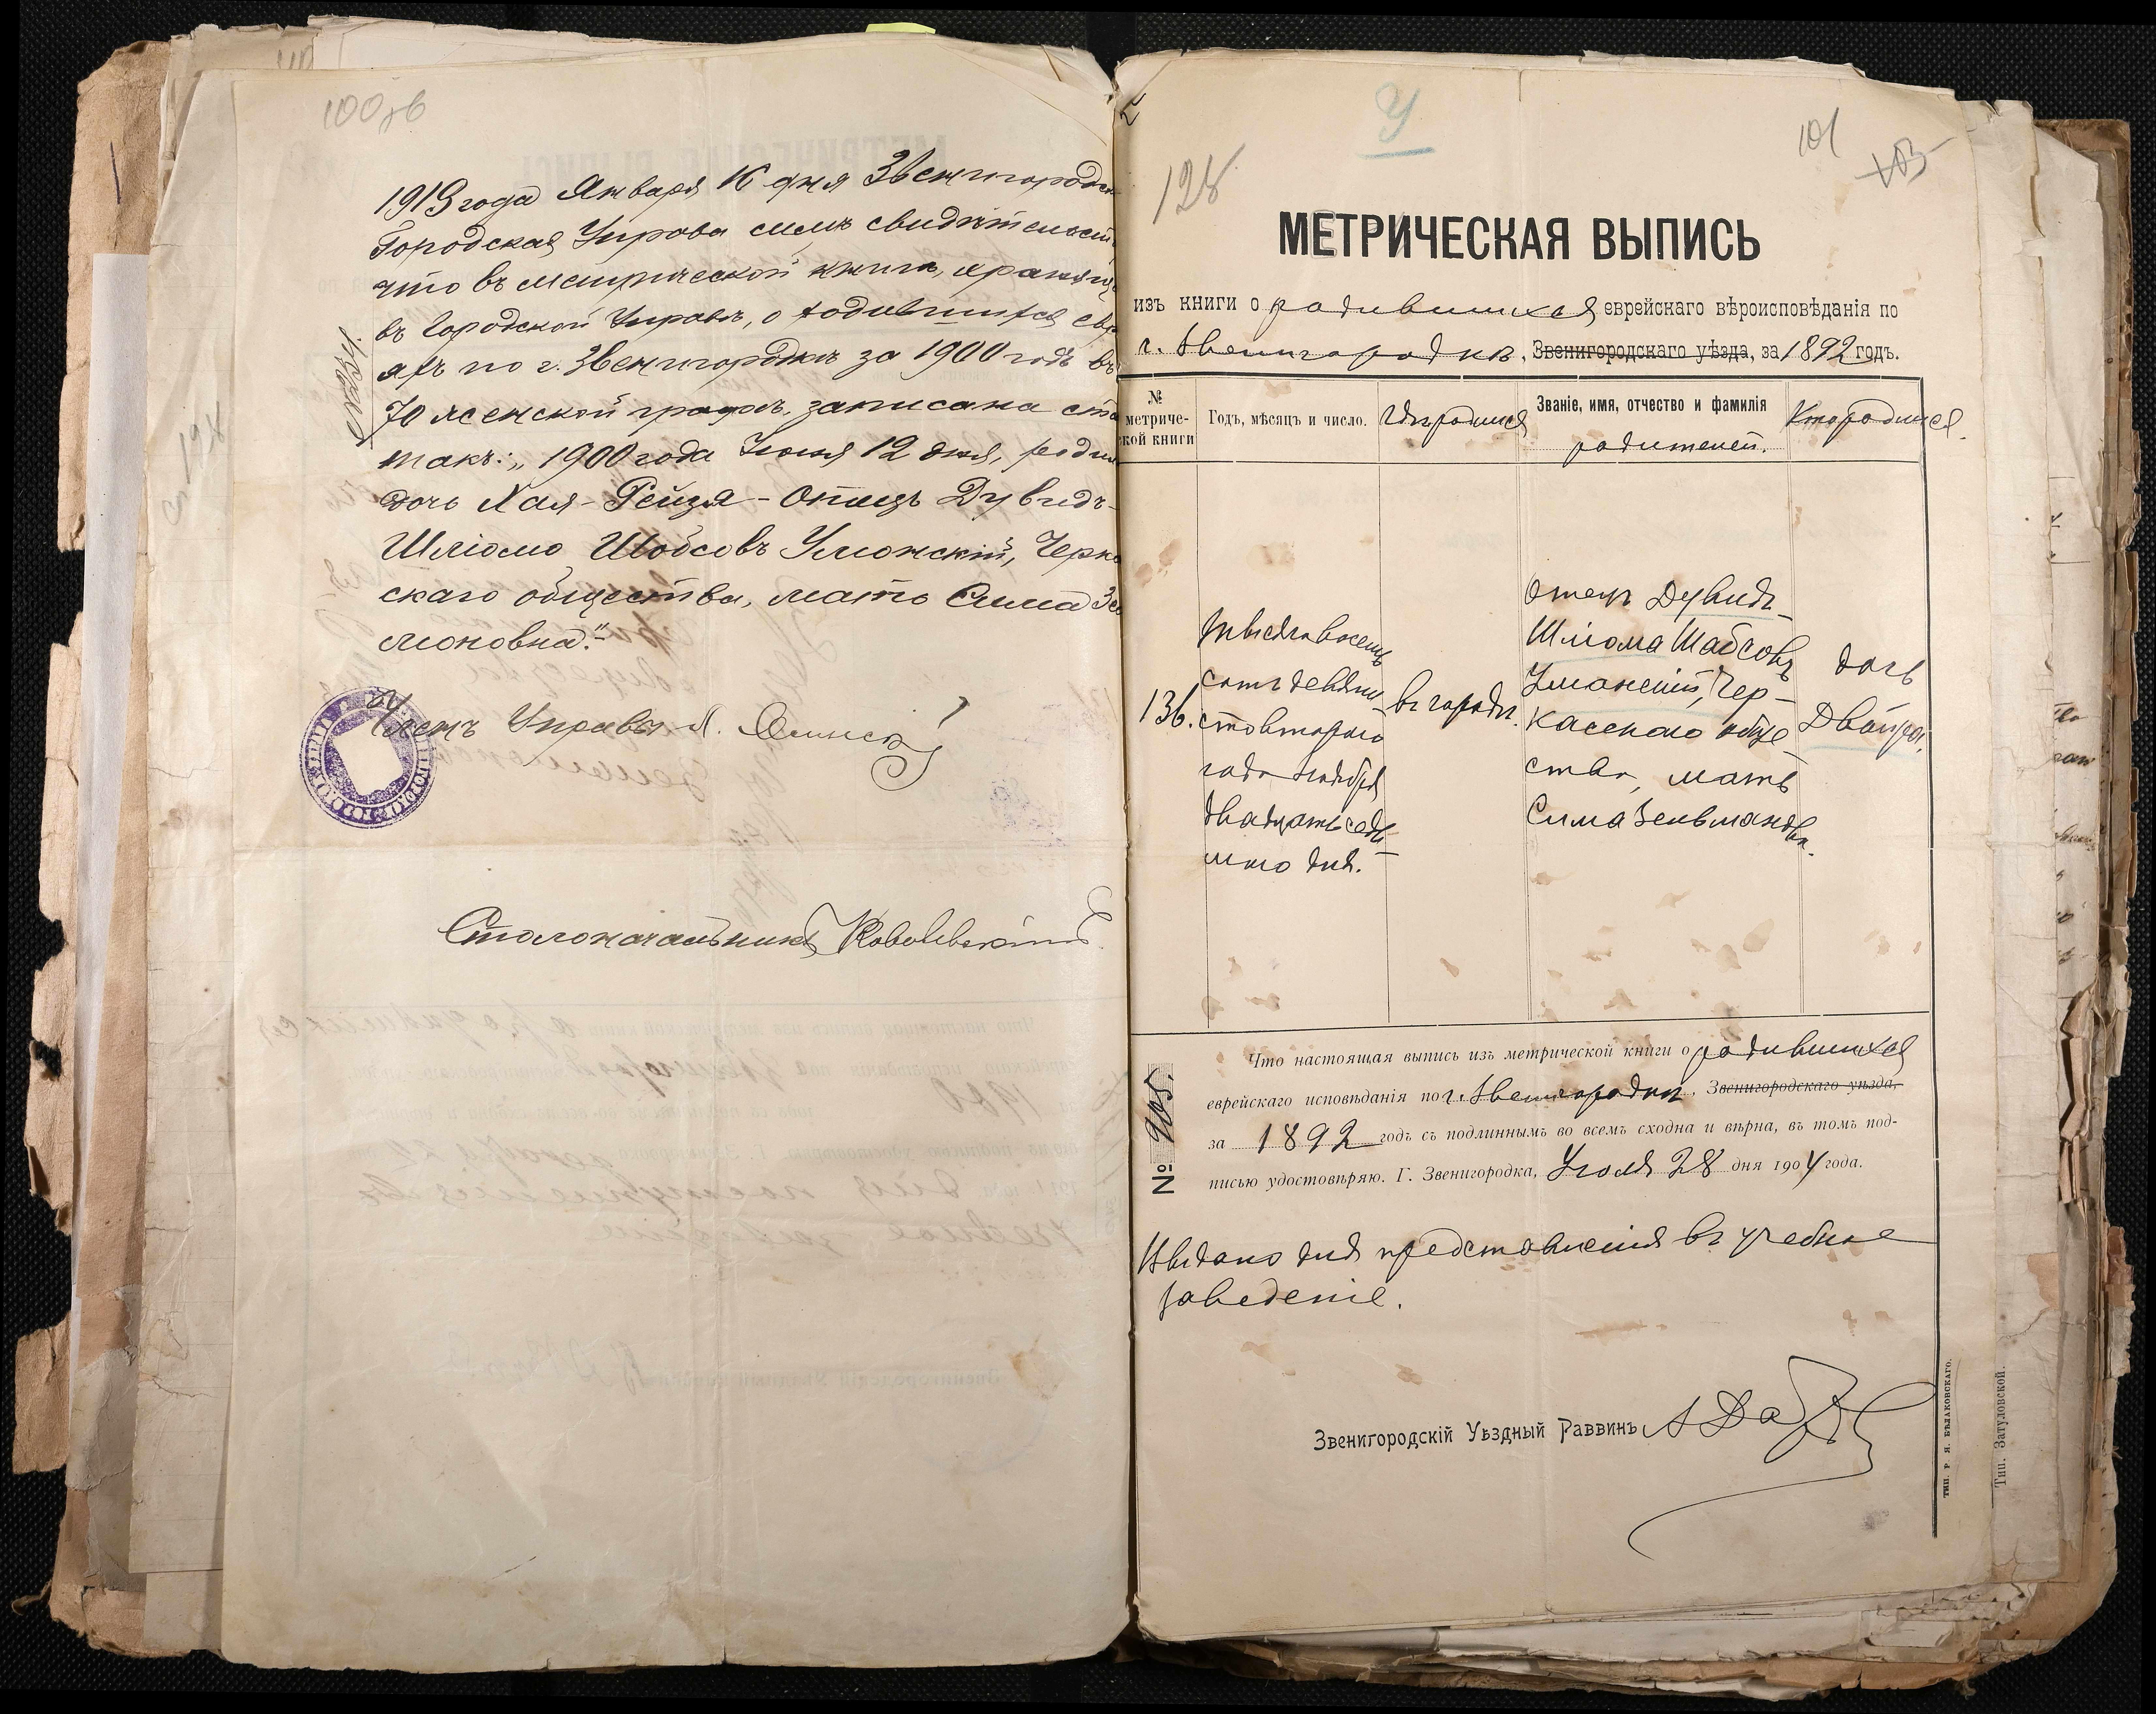 100об
1913 года Января 16 дня Звенигородск
Городская Управа симъ свидѣтельст
что въ метрической книгѣ, хранящ
въ Городской Управѣ, о родившихся евр
яхъ по г. Звенигородкѣ за 1900 годъ въ
70 женской графѣ, записана ст
такъ: „1900 года Іюня 12 дня, роди
дочь Хая-Рейзя - Отецъ Дувидъ-
Шліомо Шобсовъ Умонскій, Черка
скаго общества, мать Сима Зе
моновна."
Членъ Управы
Столоначальникъ
У
128.
101
МЕТРИЧЕСКАЯ ВЫПИСЬ
изъ книги о родившихся еврейскаго вѣроисповѣданія по
г. Звенигородкѣ, Звенигородскаго уѣзда, за 1892 годъ.
№ метриче-ской книги
Годъ, мѣсяцъ и число.
Гдѣ родился
Званіе, имя, отчество и фамилія
родителей.
Кто родился.
136.
Тысяча восемь
сотъ девяно-
сто второго
года Ноября
двадцать седь-
мого дня.
въ городѣ.
Отецъ Дувидъ-
Шліома Шабсовъ
Уманскій, Чер-
касскаго обще-
ства, мать
Сима Зельмановна.
дочь
Двойра.
№ 905.
Что настоящая выпись изъ метрической книги о родившихся
еврейскаго исповѣданія по г. Звенигородкѣ, Звенигородскаго уѣзда,
за 1892 годъ съ подлиннымъ во всемъ сходна и вѣрна, въ томъ под-
писью удостовѣряю. Г. Звенигородка, Іюля 28 дня 1904 года.
Выдано для представленія въ учебное
заведеніе.
Звенигородскій Уѣздный Раввинъ
тип. Р. Я. Бѣлаковскаго.
Тип. Затуловской.